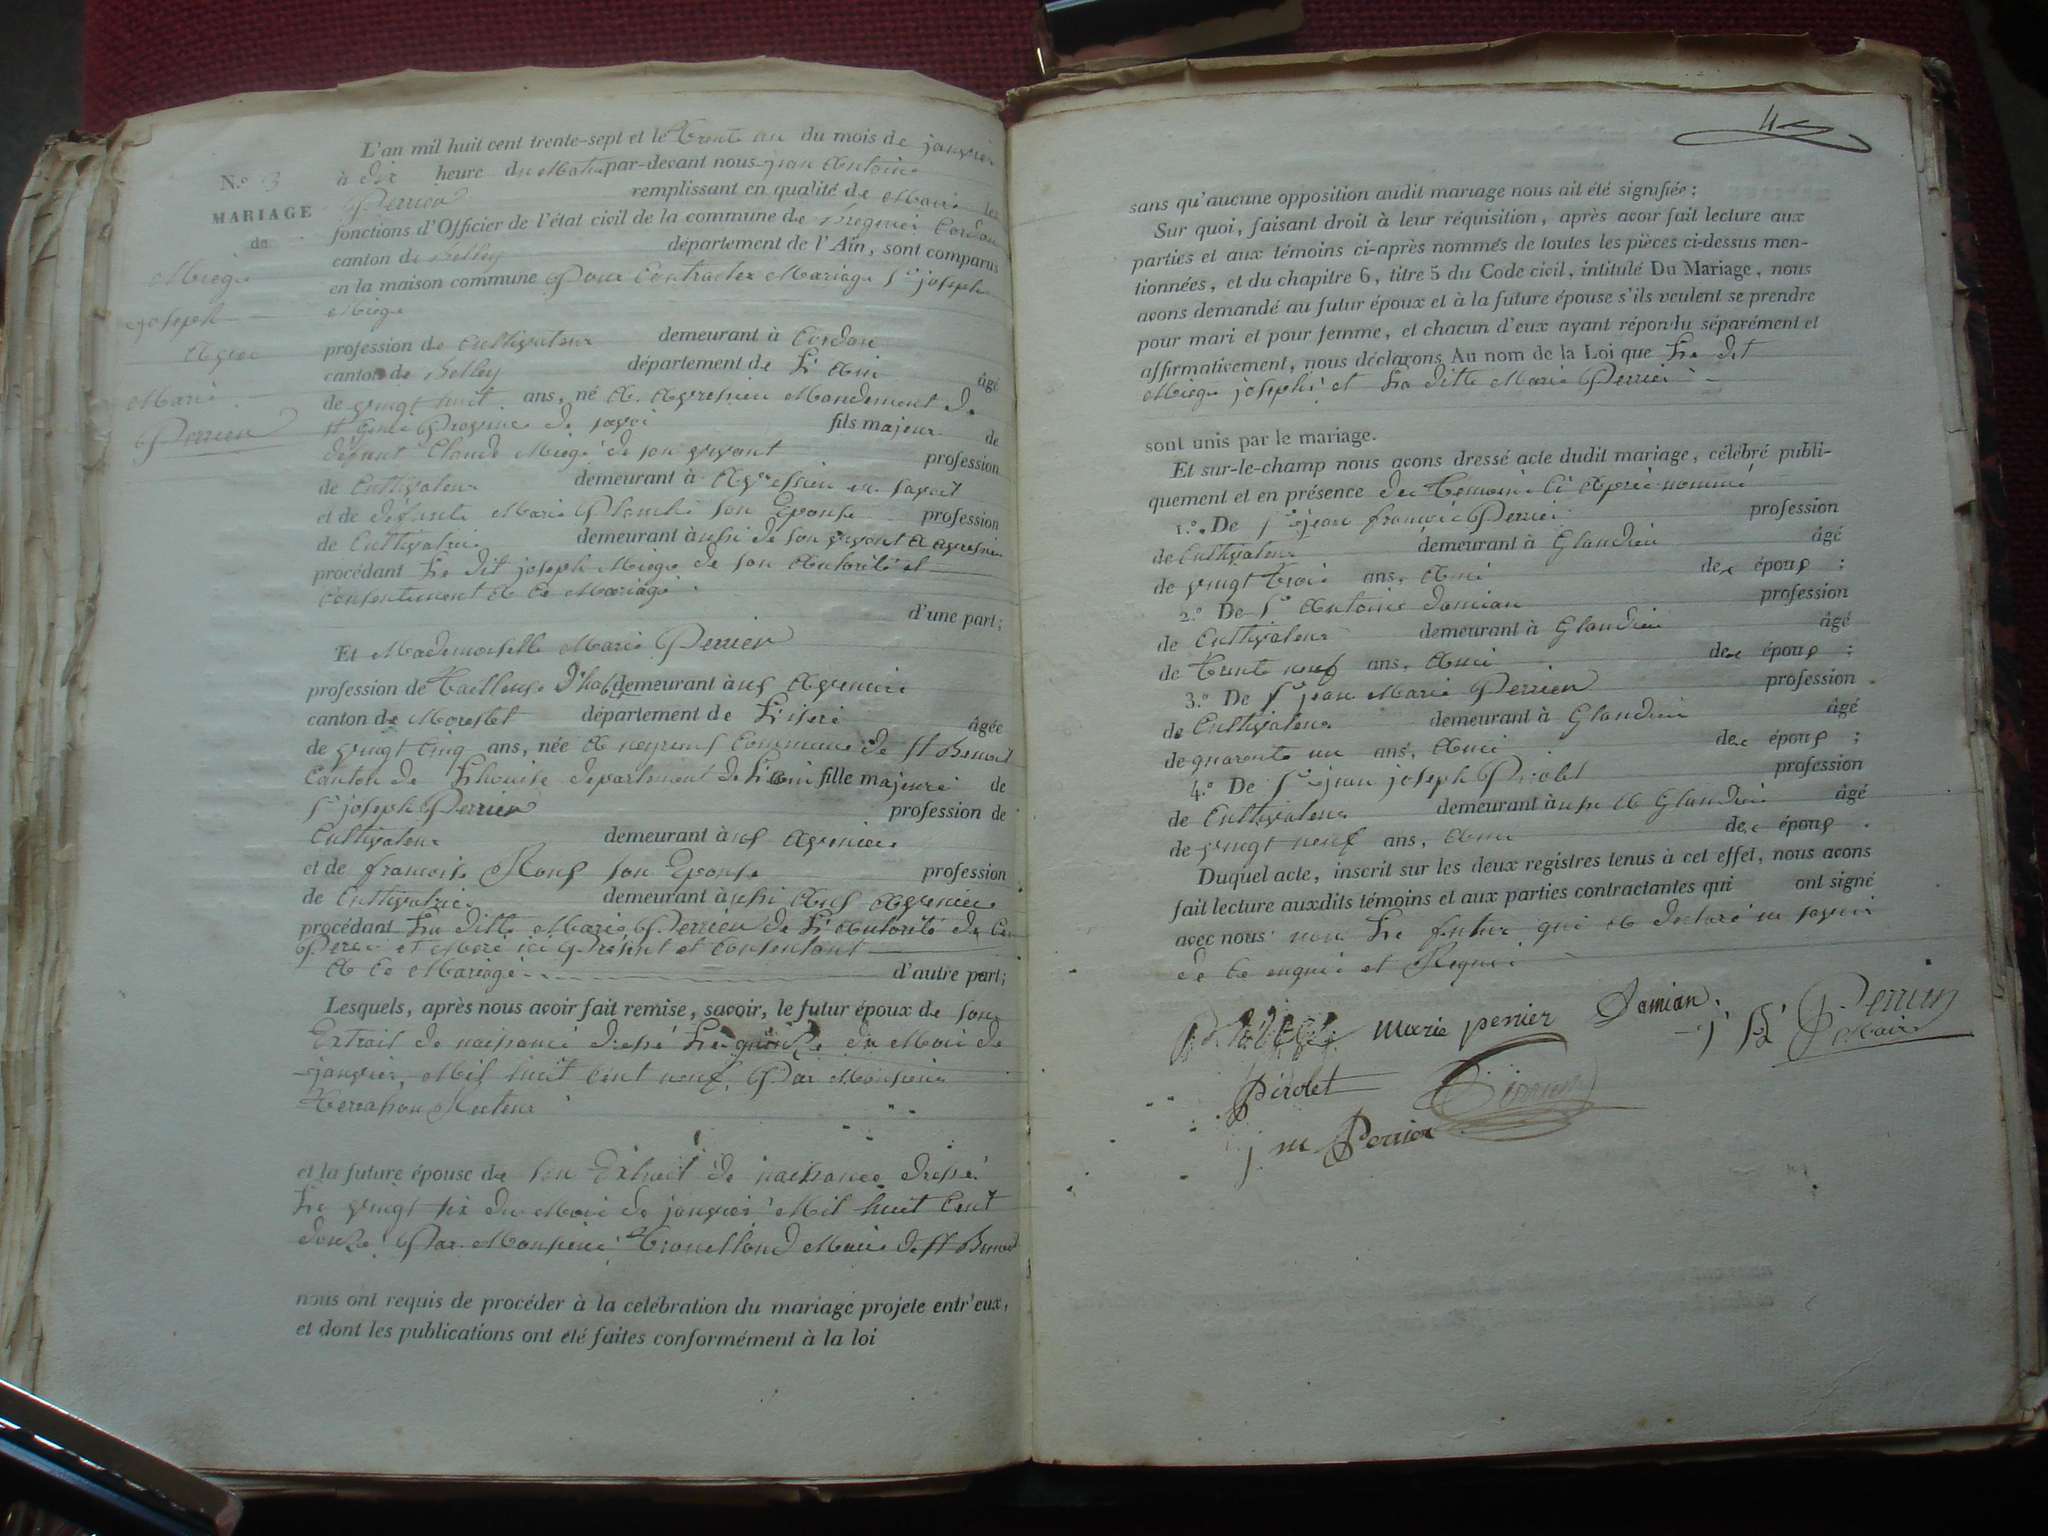 L'an mil huit cent trente-sept et le trente un du mois de janvier
N.º 3 à dix heure du Matin par-devant nous jean Antoine
Perrier remplissant en qualité de Maire les
MARIAGE
fonctions d'Officier de l'état civil de la commune de Bregnier Cordon
de
canton de Belley département de l'Ain, sont comparus
en la maison commune Pour Contracter Mariage Sr joseph
Miege
Miege
joseph
Avec
Marie
Perrier
profession de Cultivateur demeurant à Cordon
canton de Belley département de L'Ain âgé
de vingt huit ans, né A Avressieu Mandement de
St Genix Province de savoi fils majeur de
defunt Claude Miege de son vivant profession
de Cultivateur demeurant à Avressieu en savoit
et de defunte Marie Planche son Epouse profession
de Cultivatrice demeurant àussi de son vivant a avressieu
procédant Le dit joseph Miege de son Autorité et
Consentement A Ce Mariage
d'une part;
Et Mademoiselle Marie Perrier
profession de Tailleuse D'hab demeurant à
canton de Morestel département de L'isere âgée
de vingt cinq ans, née A Commune de St Benoit
Canton de Lhouise departement de L'ain fille majeure de
Sr joseph Perrier profession de
Cultivateur demeurant à
et de francoise son Epouse profession
de Cultivatrice demeurant àussi
procédant La ditte Marie Perrier de L'Autorité de Ces
Perer et Mere ici Présent et Consentant
A Ce Mariage d'autre part;
Lesquels, après nous avoir fait remise, savoir, le futur époux de son
Extrait de naissance dressé Le quinze du Moi de
janvier, Mil huit Cent neuf, Par Monsieur
Recteur
et la future épouse de son Extrait de naissance dressé
Le vingt six du Moi de janvier Mil huit Cent
douze Par Monsieur Trouilloud Maire de St Benoit
nous ont requis de procéder à la celébration du mariage projeté entr'eux,
et dont les publications ont été faites conformément à la loi
4
sans qu'aucune opposition audit mariage nous ait été signifiée;
Sur quoi, faisant droit à leur réquisition, après avoir fait lecture aux
parties et aux témoins ci-après nommés de toutes les pièces ci-dessus men-
tionnées, et du chapitre 6, titre 5 du Code civil, intitulé Du Mariage, nous
avons demandé au futur époux et à la future épouse s'ils veulent se prendre
pour mari et pour femme, et chacun d'eux ayant répondu séparément et
affirmativement, nous déclarons Au nom de la Loi que Le dit
Miege joseph et La ditte Marie Perrier
sont unis par le mariage.
Et sur-le-champ nous avons dressé acte dudit mariage, célébré publi-
quement et en présence de Temoin Ci Aprè nommé
1.º De Sr jean françoi Perrier profession
de Cultivateur demeurant à Glandieu âgé
de vingt troi ans, Ami des époux ;
2.º De Sr Antoine damian profession
de Cultivateur demeurant à Glandieu âgé
de Trente neuf ans, Ami des époux ;
3.º De Sr jean Marie Perrier profession
de Cultivateur demeurant à Glandieu âgé
de quarante un ans, Ami des époux ;
4.º De Sr jean joseph Pirolet profession
de Cultivateur demeurant àussi A Glandieu âgé
de vingt neuf ans, Ami des époux .
Duquel acte, inscrit sur les deux registres tenus à cet effet, nous avons
fait lecture auxdits témoins et aux parties contractantes qui ont signé
avec nous non Le futur qui A declaré ne savoir
de Ce enqui et Requi
Marie perrier Damian. Perrier
Maire
Pirolet
j m Perrier